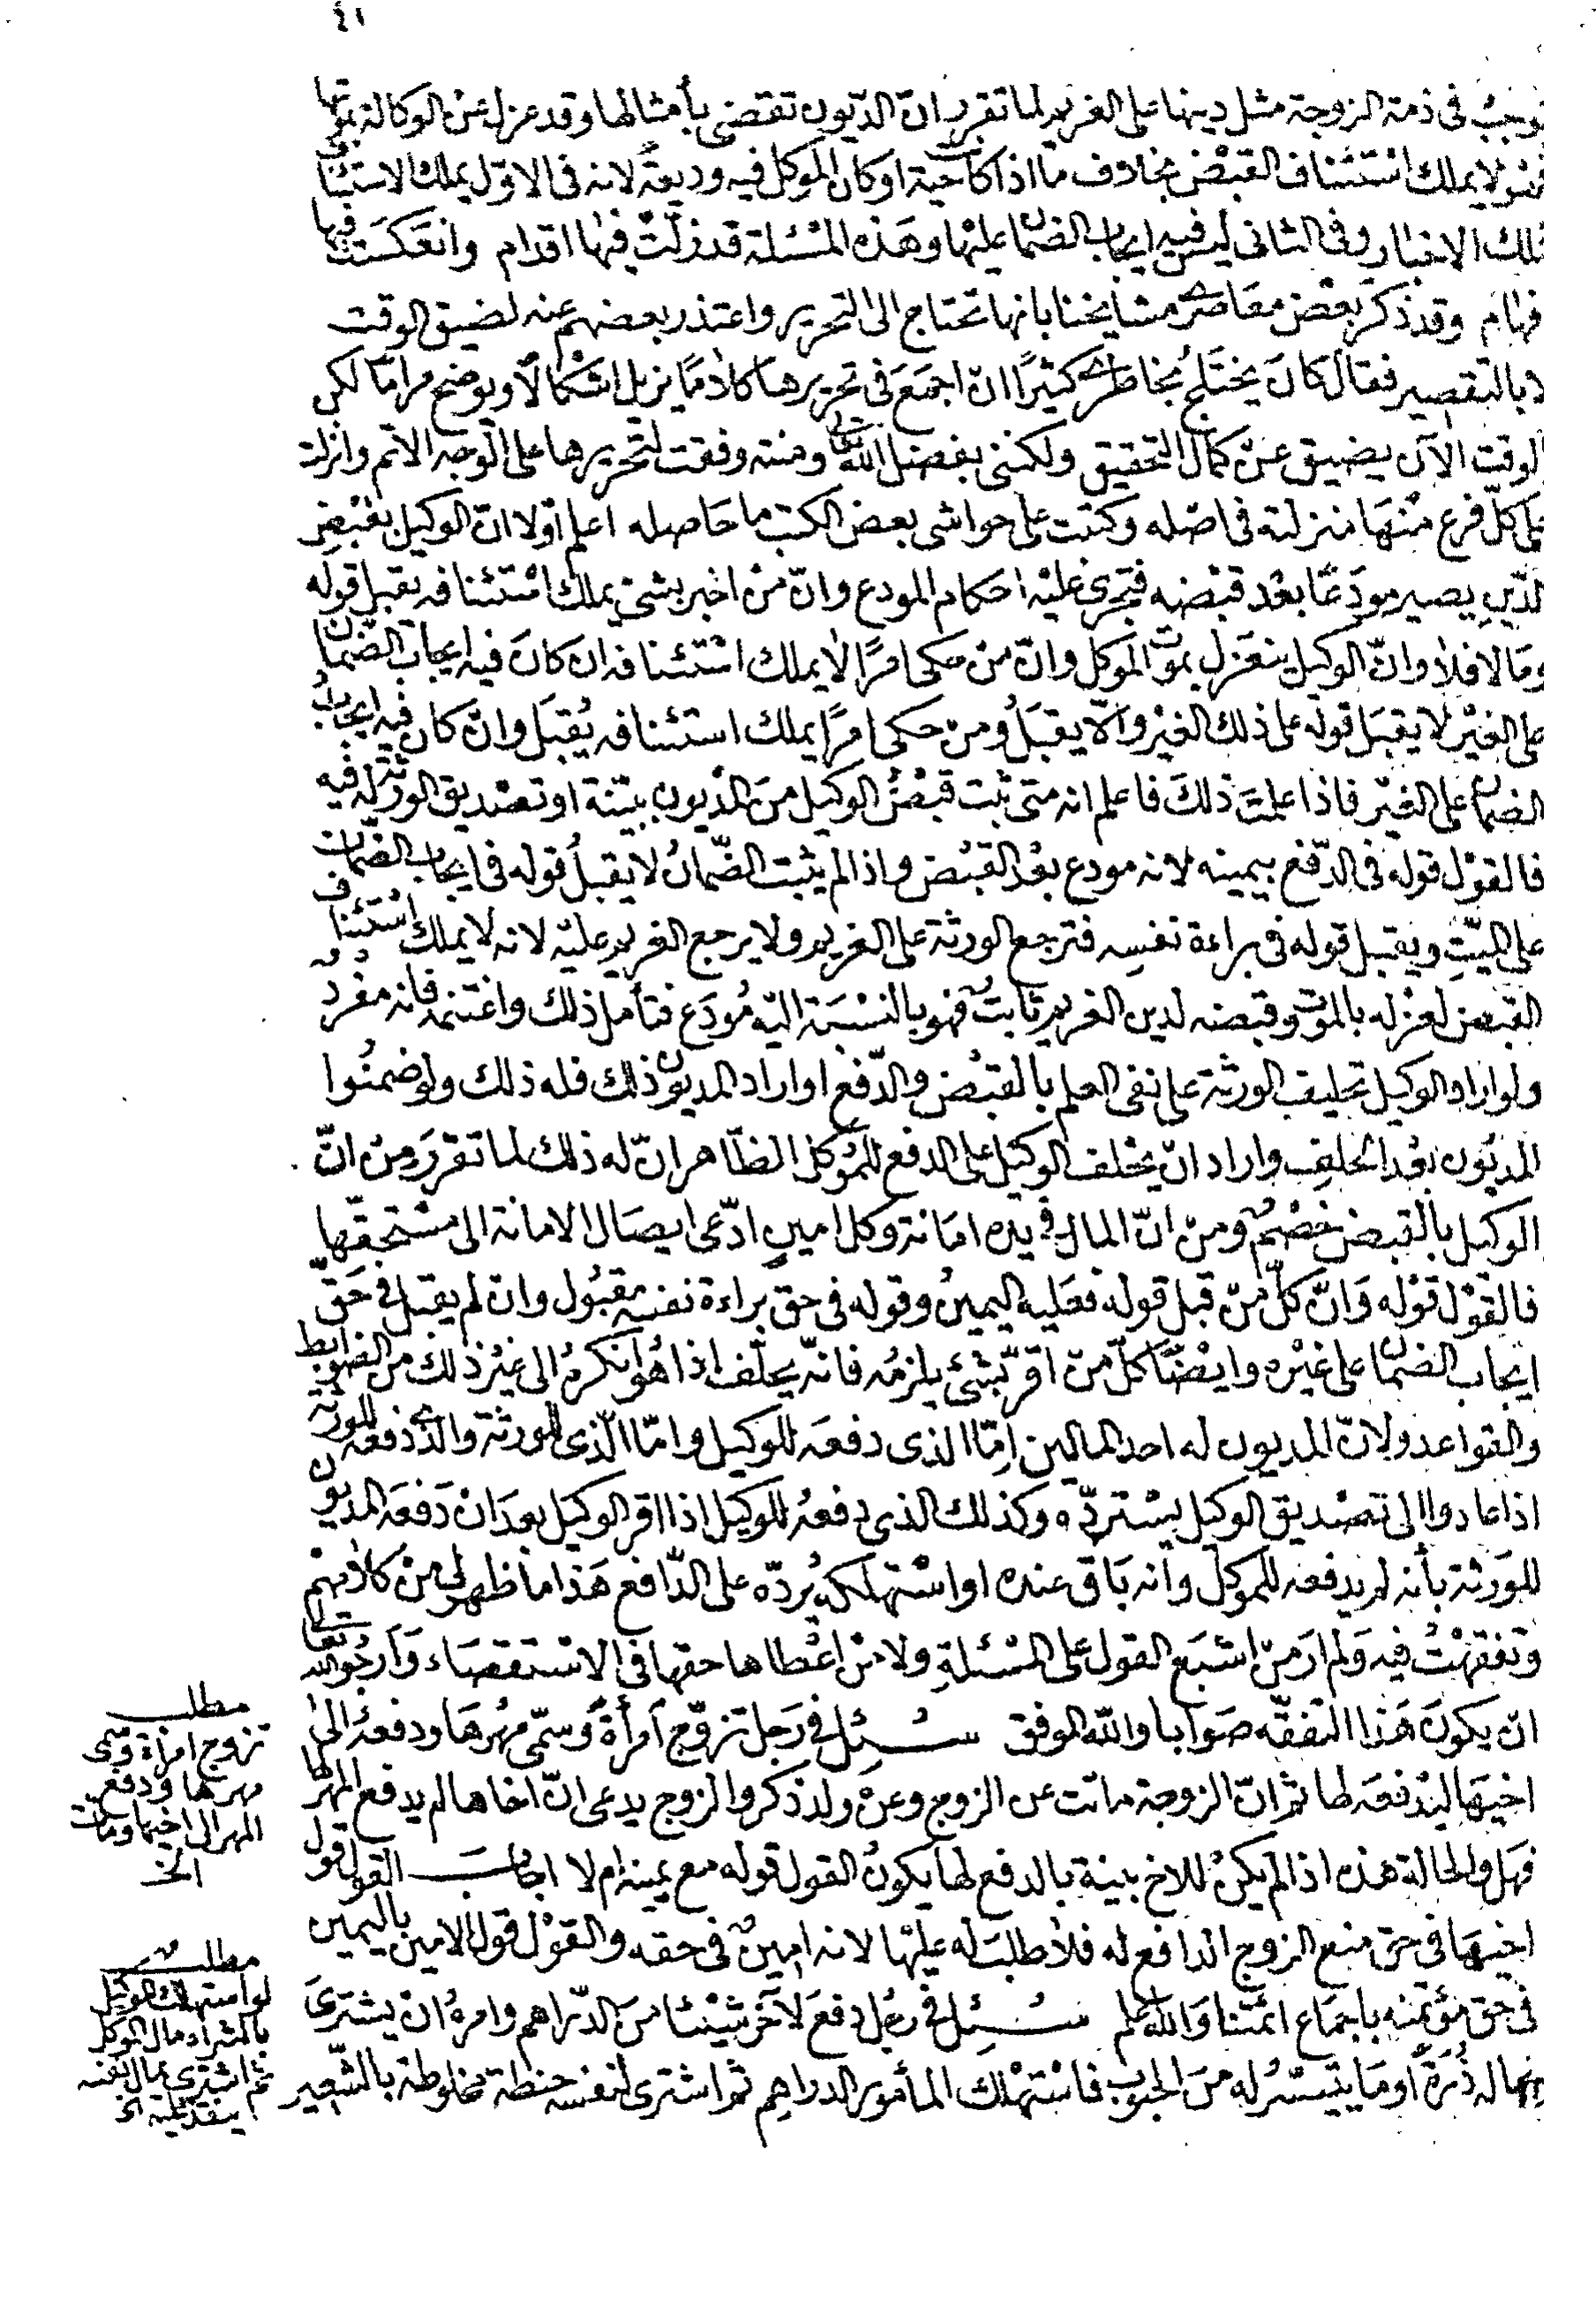 ٤١
توجب فى ذمة الزوجة مثل دينها على الغريم لما تقرر ان الديون تقضى بأمثالها وقد عزل عن الوكالة بموتها
فهو لا يملك استئناف القبض بخلاف ما اذا كانت حية او كان الموكل فيه وديعة لانه فى الاول يملك الاستئناف
تلك الاخبار وفى الثانى ليس فيه ايجاب الضمان عليها وهذه المسئلة قد زلت فيها اقدام وانعكست فيها
افهام وقد ذكر بعض معاصرى مشايخنا بانها تحتاج الى التحرير واعتذر بعضهم عنه لضيق الوقت
لا بالتقصير فقال كان يختلج بخاطرى كثيرًا ان اجمع فى تحريرها كلاما يزيل اشكالا ويوضح مراما لكن
الوقت الآن يضيق عن كمال التحقيق ولكننى بفضل الله تعالى ومنته وفقت لتحريرها على الوجه الاتم وانزلت
على كل فرع منها منزلته فى اصله وكتبت على حواشى بعض الكتب ما حاصله اعلم اولا ان الوكيل بقبض
الدين يصير مودعًا بعد قبضه فتجرى عليه احكام المودع وان من اخبر بشئ يملك استئنافه يقبل قوله
وما لا فلا وان الوكيل ينعزل بموت الموكل وان من حكى امرًا لا يملك استئنافه ان كان فيه ايجاب الضمان
على الغير لا يقبل قوله على ذلك الغير والا يقبل ومن حكى امرًا يملك استئنافه يُقبل وان كان فيه ايجاب
الضمان على الغير فاذا علمت ذلك فاعلم انه متى ثبت قبض الوكيل من المديون ببينة او تصديق الورثة له فيه
فالقول قوله فى الدفع بيمينه لانه مودع بعد القبض واذا لم يثبت الضمان لا يقبل قوله فى ايجاب الضمان
على الميت ويقبل قوله فى براءة نفسه فترجع الورثة على الغريم ولا يرجع الغريم عليه لانه لا يملك استئناف
القبض لعزله بالموت وقبضه لدين الغريم ثابت فهو بالنسبة اليه مُودَع فتأمل ذلك واغتنمه فانه مفرد
ولو اراد الوكيل تحليف الورثة على نفى العلم بالقبض والدفع او اراد المديون ذلك فله ذلك ولو ضمنُوا
المديون بعد الحلف واراد ان يحلف الوكيل على الدفع للموكل الظاهر ان له ذلك لما تقرر من ان
الوكيل بالقبض خصم ومن ان المال فى يده امانة وكل امين ادعى ايصال الامانة الى مستحقها
فالقول قوله وان كل من قبل قوله فعليه اليمين وقوله فى حق براءة نفسه مقبول وان لم يقبل فى حق
ايجاب الضمان على غيره وايضًا كل من اقر بشئ يلزمه فانه يحلف اذا هو انكره الى غير ذلك من الضوابط
والقواعد ولان المديون له احد المالين اما الذى دفعه للوكيل واما الذى للورثة والذى دفعه للورثة
اذا عادوا الى تصديق الوكيل يسترده وكذلك الذى دفعه للوكيل اذا اقر الوكيل بعد ان دفعه المديون
للورثة بأنه لم يدفعه للموكل وانه باق عنده او استهلكه يُردّه على الدافع هذا ما ظهر لى من كلامهم
وتفقهت فيه ولم ار من اشبع القول على المسئلة ولا من اعطاها حقها فى الاستقصاء وارجو الله تعالى
ان يكون هذا التفقه صوابا والله الموفق سئل فى رجل تزوج امرأة وسمى مهرها ودفعه الى
اخيها ليدفعه لها ثم ان الزوجة ماتت عن الزوج وعن ولد ذكر والزوج يدعى ان اخاها لم يدفع المهر لها
فهل والحالة هذه اذا لم يكن للاخ بينة بالدفع لها يكون القول قوله مع يمينه ام لا اجاب القول قول
اخيها فى حق منع الزوج الدافع له فلا طلب له عليها لانه امين فى حقه والقول قول الامين باليمين
فى حق مؤتمنه باجماع ائمتنا والله اعلم سئل فى رجل دفع لآخر شيئا من الدراهم وامره ان يشترى
بها له ذُرَة او ما يتيسر له من الحبوب فاستهلك المأمور الدراهم ثم اشترى لنفسه حنطة مخلوطة بالشعير
مطلب
تزوج امرأة وسمى
مهرها ودفع
المهر الى اخيها وماتت
الخ
مطلب
لو استهلك الوكيل
بالشراء مال الموكل
ثم اشترى بمال نفسه
ينفذ عليه الخ